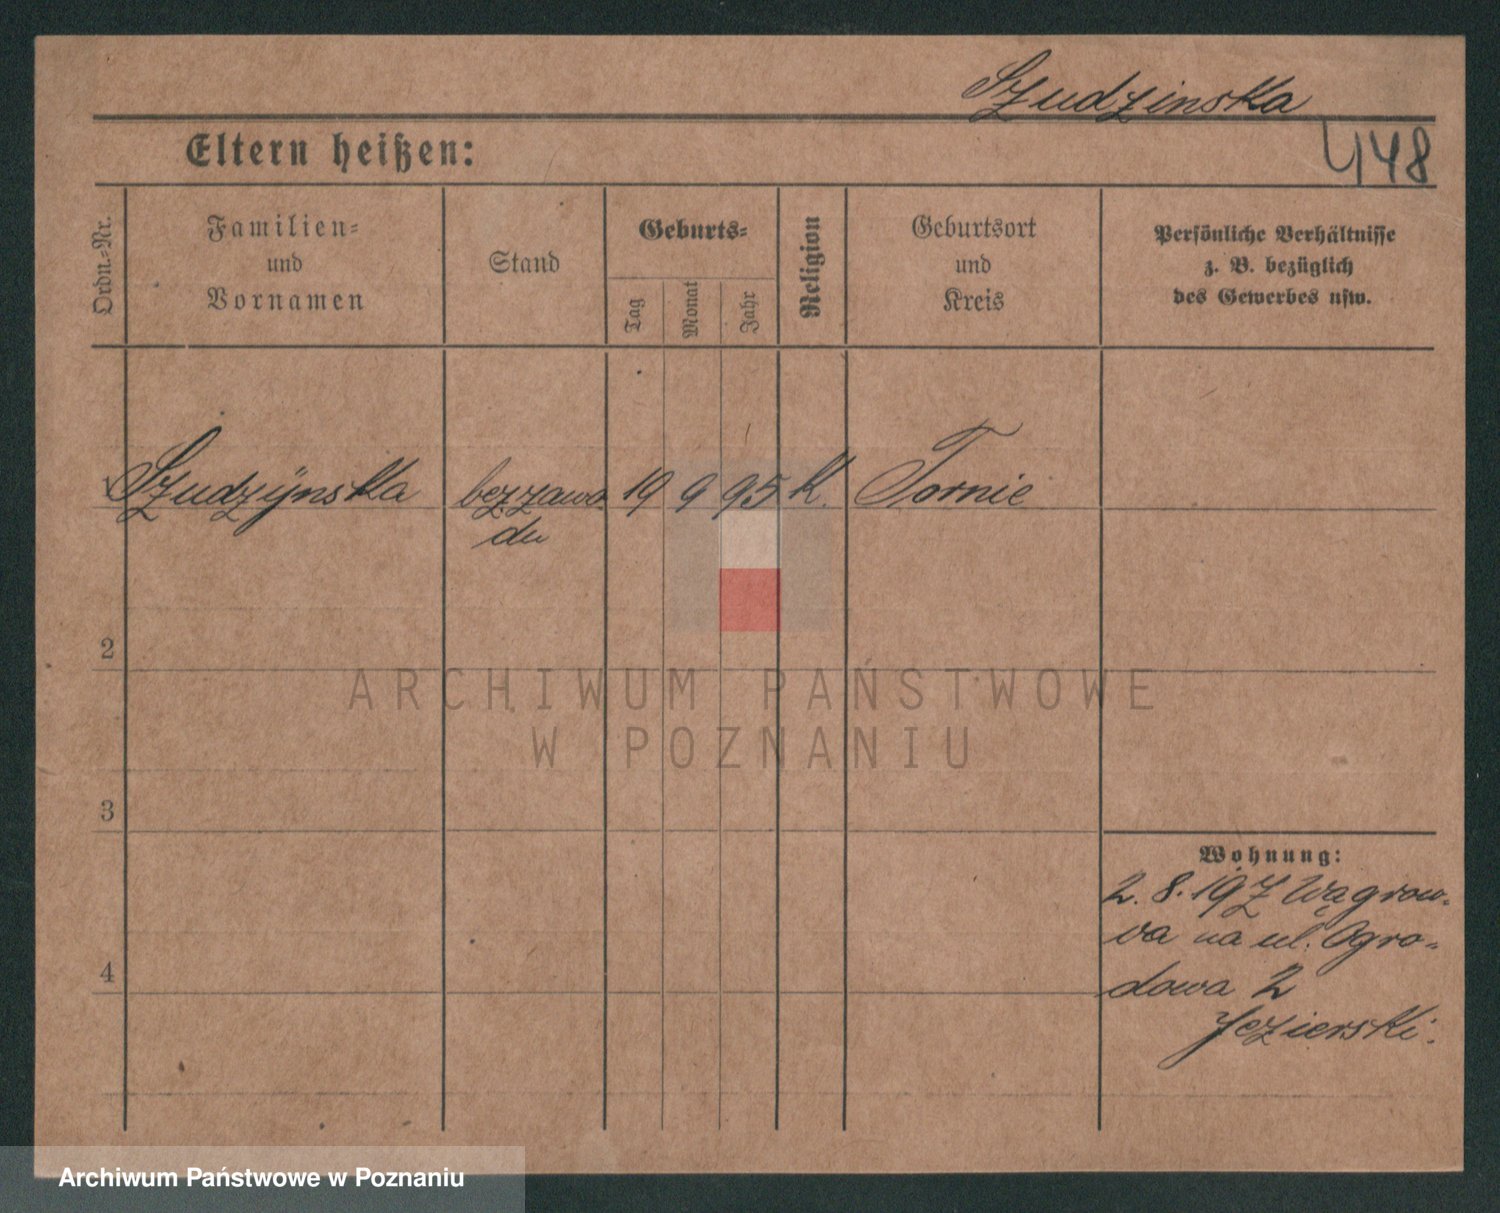 Szudzinska
448
Eltern heißen:
Ordn.-Nr.
Familien-
und
Vornamen
Stand
Geburts-
Tag
Monat
Jahr
Religion
Geburtsort
und
Kreis
Persönliche Verhältnisse
z. B. bezüglich
des Gewerbes usw.
Szudzÿnska bez zawo 19 9 95 K. Tornie
du
2
ARCHIWUM PAŃSTWOWE
W POZNANIU
3
Wohnung:
2. 8. 19 Z Wągrow-
va na ul. Ogro-
dowa 2
Jezierski.
4
Archiwum Państwowe w Poznaniu